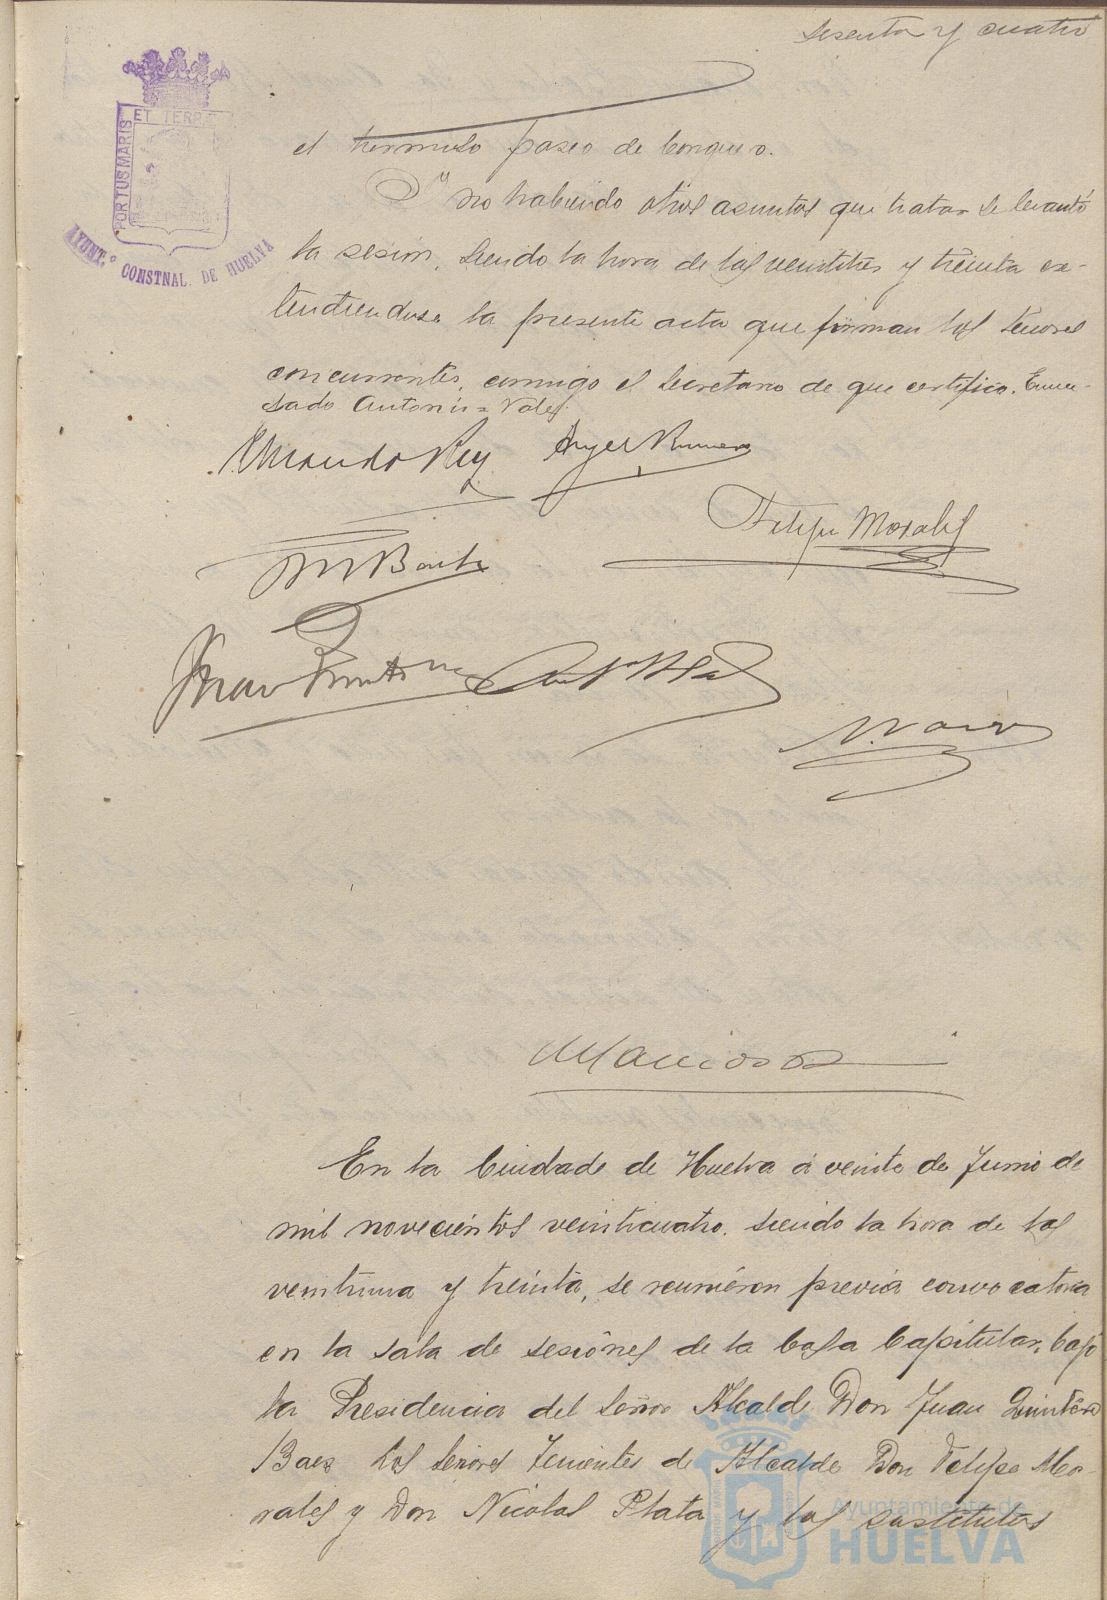 sesenta y cuatro
PORTUS MARIS
ET TERR
AYUNT.º CONSTNAL. DE HUELVA
el hermoso paseo de Conquero.
Y no habiendo otros asuntos que tratar se levantó
la sesion, siendo la hora de las veintitres y treinta ex-
tendiendose la presente acta que firman los señores
concurrentes, conmigo el Secretario de que certifico. Enmen-
dado Antonio = Vale.
Rey
Angel Romero
Felipe Morales
Juan Quintero
En la Ciudade de Huelva á veinte de Junio de
mil novecientos veinticuatro. siendo la hora de las
veintiuna y treinta, se reunieron previa convocatoria
en la sala de sesiones de la Casa Capitular, bajo
la Presidencia del Señor Alcalde Don Juan Quintero
Baez los Señores Tenientes de Alcalde Don Felipe Mo-
rales y Don Nicolas Plata y los sustitutos
Ayuntamiento de
HUELVA